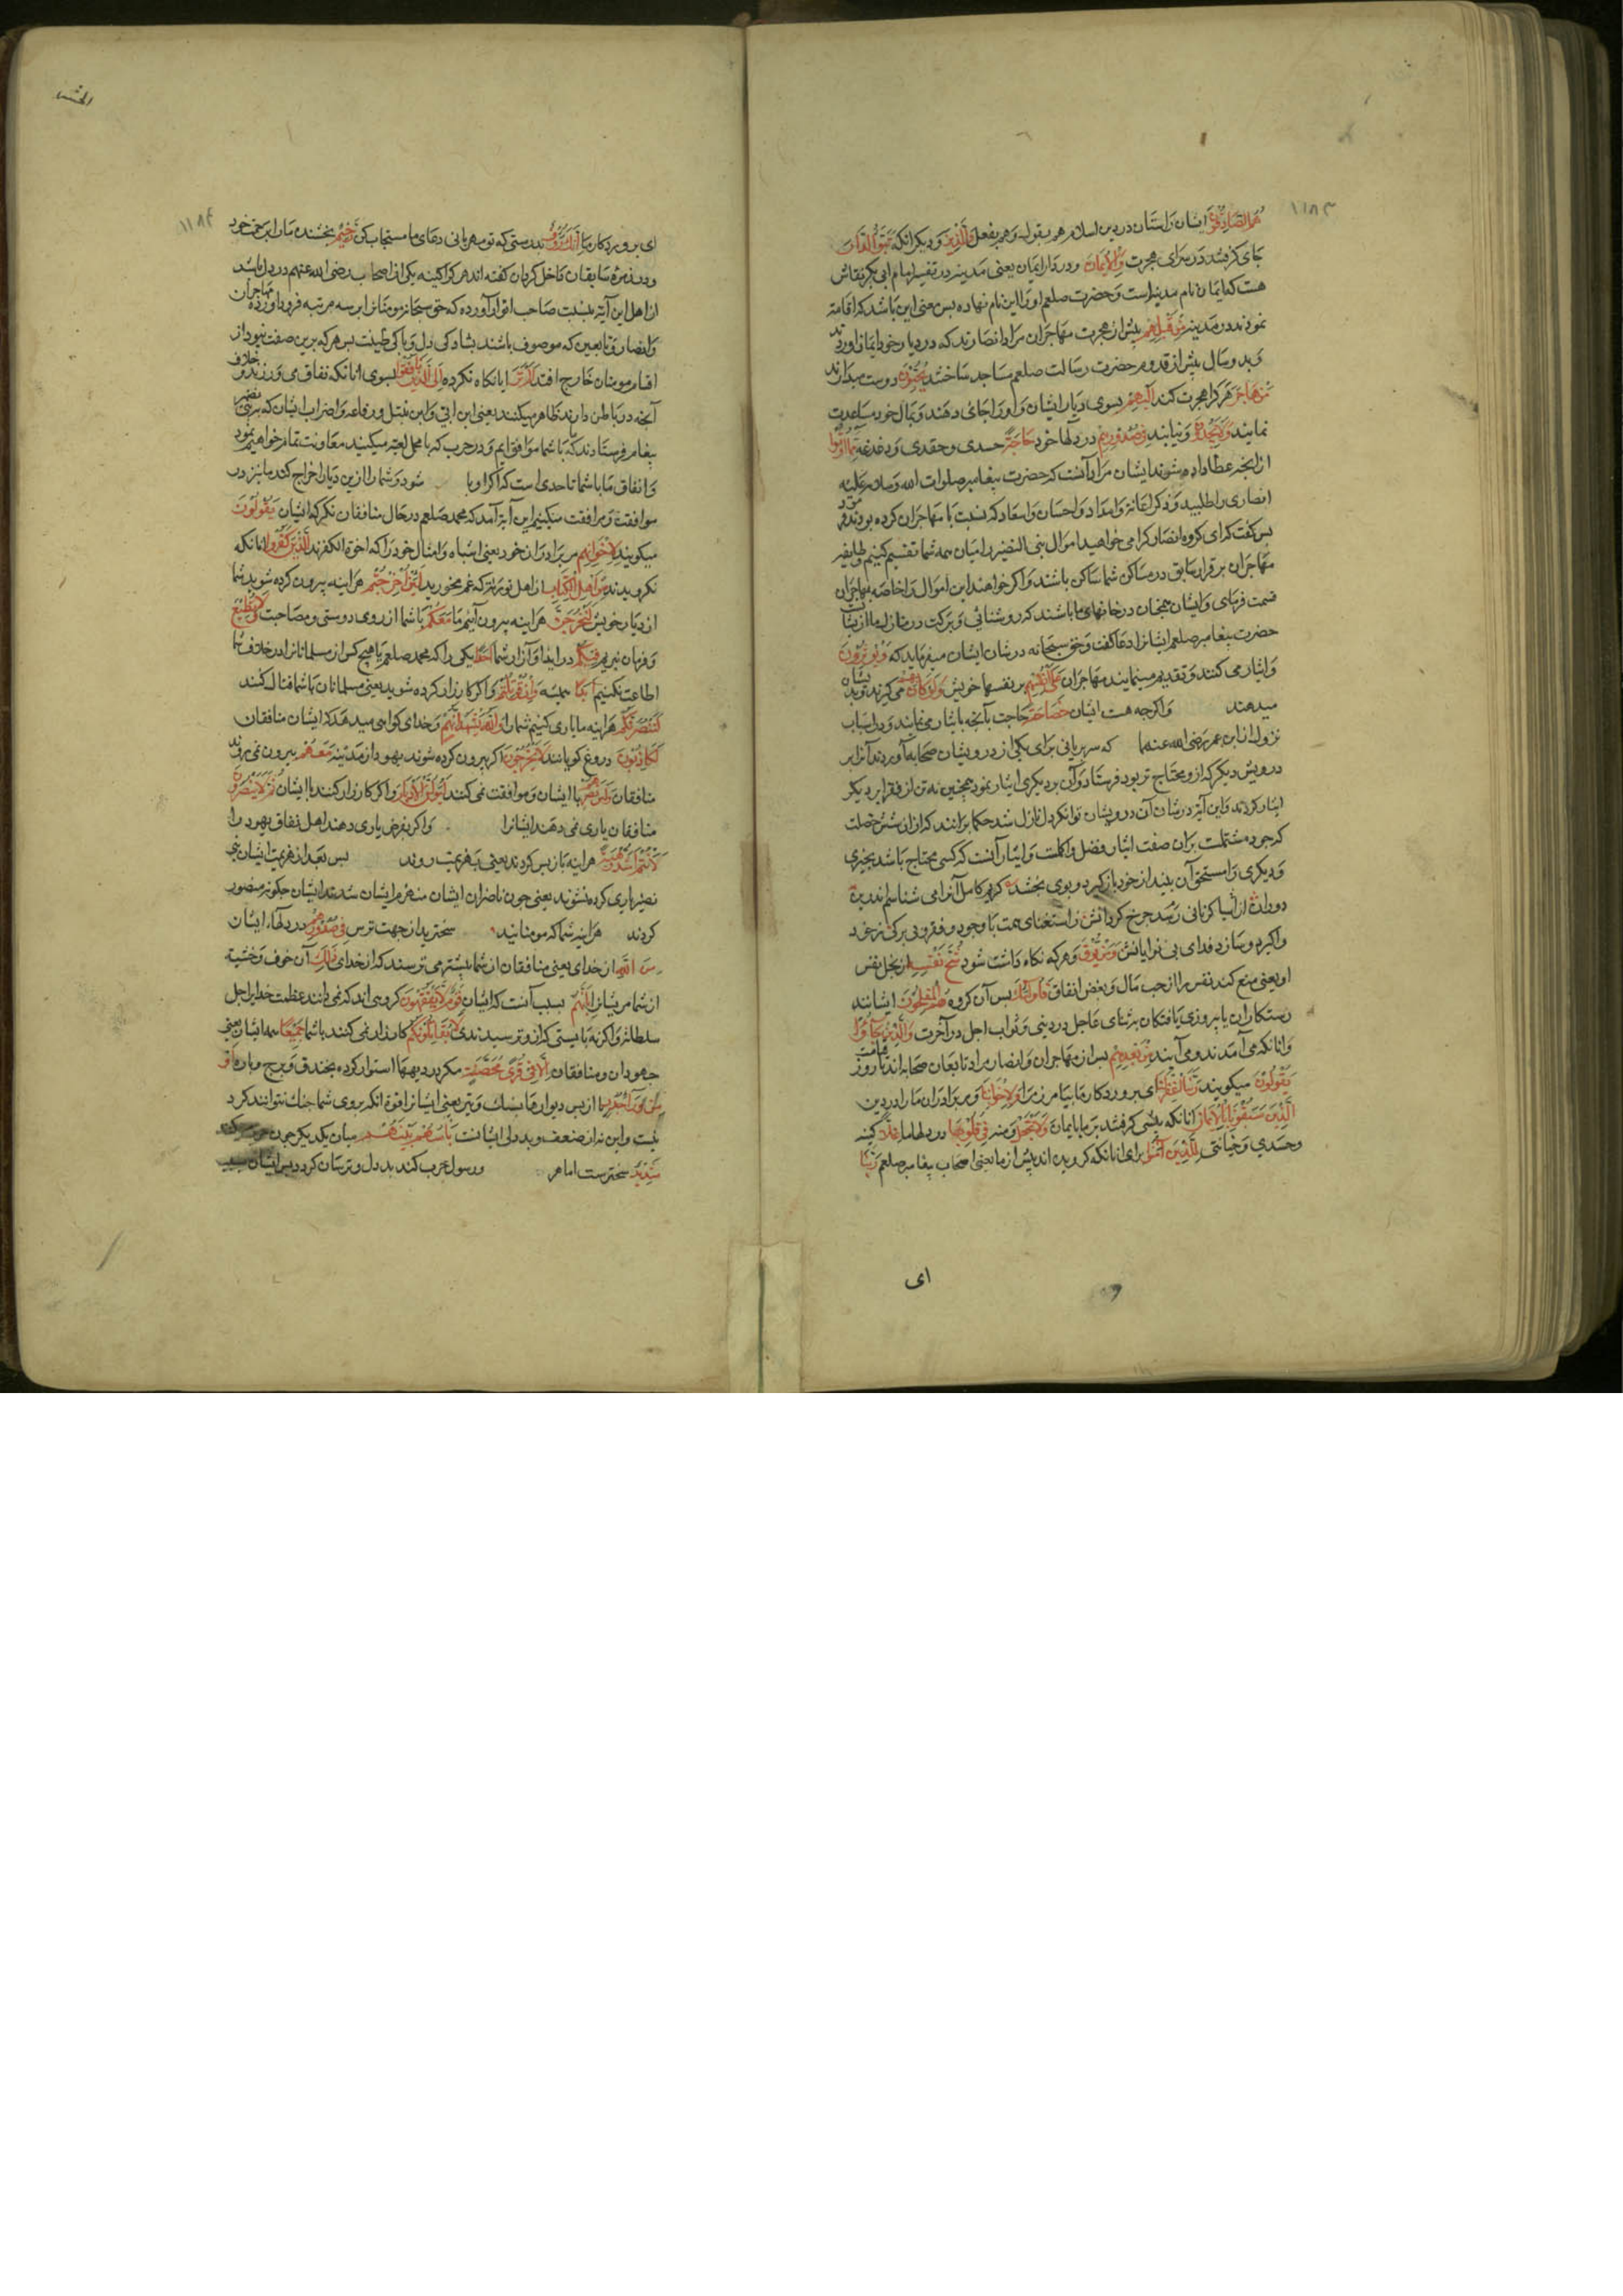 ۱۱۸۳
هُمُ الصَّادِقُونَ ایشان راستان در دین اسلام هم بقول و هم بفعل وَالَّذِينَ و دیکر انانکه تَبَوَّؤُا الدَّارَ
جای کرفتند در سرای هجرت وَالْإِيمَانَ و در دار ایمان یعنی مدینه در تفسیر امام ابی بکر نقاش
هست که ایمان نام مدینه است و حضرت صلعم او را این نام نهاده بس معنی این باشد که اقامة
نمودند در مدینه مِنْ قَبْلِهِمْ بیش از هجرت مهاجران مراد انصارند که در دیار خود ایمان اوردند
و بدو سال بیش از قدوم حضرت رسالت صلعم مساجد ساختند يُحِبُّونَ دوست میدارند
مَنْ هَاجَرَ هر کرا هجرت کند إِلَيْهِمْ بسوی دیار ایشان و او را جای دهند و بمال خود مساعدت
نمایند وَلَا يَجِدُونَ و نیابند فِي صُدُورِهِمْ در دلها خود حَاجَةً حسدی و حقدی و دغدغه مِمَّا أُوتُوا
از انجه عطا داده شوند ایشان مراد آنست که حضرت بیغامبر صلوات الله و سلامه علیه
انصاری را طلبید و ذکر اعانة و امداد و احسان و اسعاد که نسبت با مهاجران کرده بودند
بس کفت که ای کروه انصار کرا می خواهید اموال بنی النضیر را میان همه شما تقسیم کنیم و طایفه
مهاجران برقرار سابق در مساکن شما ساکن باشند و اکر خواهند این اموال را خاصه بمهاجران
قسمت فرمای و ایشان همجنان در خانهای ما باشند که روشنائی و برکت در منازل ما از
حضرت بیغامبر صلعم ایشانرا دعا کفت و حق سبحانه در شان ایشان میفرماید که وَيُؤْثِرُونَ
و ایثار می کنند و تقدیم مینمایند مهاجران عَلَىٰ أَنْفُسِهِمْ بر نفسها خویش وَلَوْ كَانَ بِهِمْ
میدهند و اکرجه هست ایشان خَصَاصَةٌ حاجت بآنجه بایثار می نمایند و در اسباب
نزول از ابن عمر رضی الله عنهما که سر بریانی برای یکی از درویشان صحابه آوردند آنرا بر
درویش دیکر که از و محتاج تر بود فرستاد و آن بر دیکری ایثار نمود همجنین نه تن از فقرا بر دیکر
ایثار کردند و این آیة در شان آن درویشان توانکر دل نازل شد حکما برانند که از ان شش خصلت
که جود مشتملست بران صفت ایثار افضل و اکملست و ایثار آنست که کسی محتاج باشد بجیزی
و دیکری را مستحق آن بیند از خود باز کیرد و بوی بخشد کریم کامل آنرا می شناسم اندرین
دوران که از نانی رسد جرخ کردانش ز استغنای همت با وجود فقر و بی برکی ز خود
وا کیرد و سازد فدای بی نوایانش وَمَنْ يُوقَ و هر که نکاه داشت شود شُحَّ نَفْسِهِ از بخل نفس
او یعنی منع کند نفس را از حب مال و بغض انفاق فَأُولَٰئِكَ بس آن کروه هُمُ الْمُفْلِحُونَ ایشانند
رستکاران یا بیروزی یافتکان بثنای عاجل در دنیی و ثواب اجل در آخرت وَالَّذِينَ جَاءُوا
و انانکه می آمدند و می آیند مِنْ بَعْدِهِمْ بس از مهاجران و انصار مراد تابعان صحابه اند تا روز قیامت
يَقُولُونَ میکویند رَبَّنَا اغْفِرْ لَنَا ای بروردکار ما بیامرز ما را وَلِإِخْوَانِنَا و مر برادران ما را در دین
الَّذِينَ سَبَقُونَا بِالْإِيمَانِ انانکه بیشی کرفتند بر ما بایمان وَلَا تَجْعَلْ و منه فِي قُلُوبِنَا در دلها ما غِلًّا کینه
و حسدی و خیانتی لِلَّذِينَ آمَنُوا برای انانکه کرویده اند بیش از ما یعنی اصحاب بیغامبر صلعم رَبَّنَا
ای
۱۱۸۴
ای بروردکار ما إِنَّكَ رَءُوفٌ بدرستی که تو مهربانی دعای ما مستجاب کن رَحِيمٌ بخشنده ما را برحمت خود
و در زمرۀ سابقان داخل کردان کفته اند هر کرا کینه یکی از اصحاب رضی الله عنهم در دل باشد
از اهل این آیة نیست صاحب انوار آورده که حق سبحانه مومنانرا بر سه مرتبه فرود آورده مهاجران
و انصار و تابعین که موصوف باشند بساد کی دل و باکی طینت بس هر که برین صفت نبود از
اقسام مومنان خارج افتد أَلَمْ تَرَ ایا نکاه نکرده إِلَى الَّذِينَ نَافَقُوا بسوی انانکه نفاق می ورزیدند
آنجه در باطن دارند ظاهر میکنند یعنی ابن ابی و ابن نبتل و رفاعه و اضراب ایشان که ببنی نضیر
بیغام فرستادند که با شما موافق ایم و در حرب که با محمد میکنید معاونت تمام خواهیم نمود
و اتفاق ما با شما تا حدی است که اکر شود و شما را ازین دیار اخراج کند ما نیز در
موافقت و مرافقت میکنیم این آیة آمد که محمد صلعم در حال منافقان نکر که ایشان يَقُولُونَ
میکویند لِإِخْوَانِهِمُ مر برادران خود یعنی اشباه و امثال خود را که اخوة الکفرند الَّذِينَ كَفَرُوا انانکه
نکرویدند مِنْ أَهْلِ الْكِتَابِ از اهل توریة که غم مخورید لَئِنْ أُخْرِجْتُمْ هراینه بیرون کرده شوید شما
از دیار خویش لَنَخْرُجَنَّ هراینه بیرون آئیم ما مَعَكُمْ با شما از روی دوستی و مصاحبت وَلَا نُطِيعُ
و فرمان نبریم فِيكُمْ در ایذا و آزار شما أَحَدًا یکی را که محمد صلعم یا هیج کس از مسلمانان در خلاف شما
اطاعت نکنیم أَبَدًا همیشه وَإِنْ قُوتِلْتُمْ و اکر کارزار کرده شوید یعنی مسلمانان با شما قتال کنند
لَنَنْصُرَنَّكُمْ هراینه ما یاری کنیم شما را وَاللَّهُ يَشْهَدُ إِنَّهُمْ و خدای کواهی میدهد که ایشان منافقان
لَكَاذِبُونَ دروغ کویانند لَئِنْ أُخْرِجُوا اکر بیرون کرده شوند یهود از مدینه مَعَهُمْ بیرون نمی روند
منافقان با ایشان و موافقت نمی کنند و اکر کارزار کنند با ایشان ثُمَّ لَا يُنْصَرُونَ
منافقان یاری نمی دهند ایشانرا و اکر بفرض یاری دهند اهل نفاق یهود را
هراینه باز بس کردند یعنی بهزیمت روند بس بعد از هزیمت ایشان
نصیر یاری کرده نشوند یعنی جون ناصران ایشان منهزم ایشان شدند ایشان جکونه منصور
کردند هراینه شما که مومنانید سختریذ از جهت ترس فِي صُدُورِهِمْ در دلهاء ایشان
مِنَ اللَّهِ از خدای یعنی منافقان از شما بیشتر می ترسند که از خدای ذَٰلِكَ آن خوف و خشیة
از شما مر ایشانرا بِأَنَّهُمْ بسبب آنست که ایشان قَوْمٌ لَا يَفْقَهُونَ کروهی اند که نمی دانند عظمت خدایرا جل
سلطانه و اکر نه بایستی که ازو ترسیدندی لَا يُقَاتِلُونَكُمْ کارزار نمی کنند با شما جَمِيعًا همه ایشان یعنی
جهودان و منافقان إِلَّا فِي قُرًى مُحَصَّنَةٍ مکر در دیهها استوار کرده بخندق و برج و باره أَوْ
مِنْ وَرَاءِ جُدُرٍ یا از بس دیوارها بسنک و تیر یعنی ایشانرا قوة انکه بروی شما جنک توانند کرد
نیست و این نه از ضعف و بددلی ایشانست بَأْسُهُمْ بَيْنَهُمْ میان یکدیکر جون
شَدِيدٌ سخترست اما هر و رسول حرب کند بددل و ترسان کردد بس ایشان